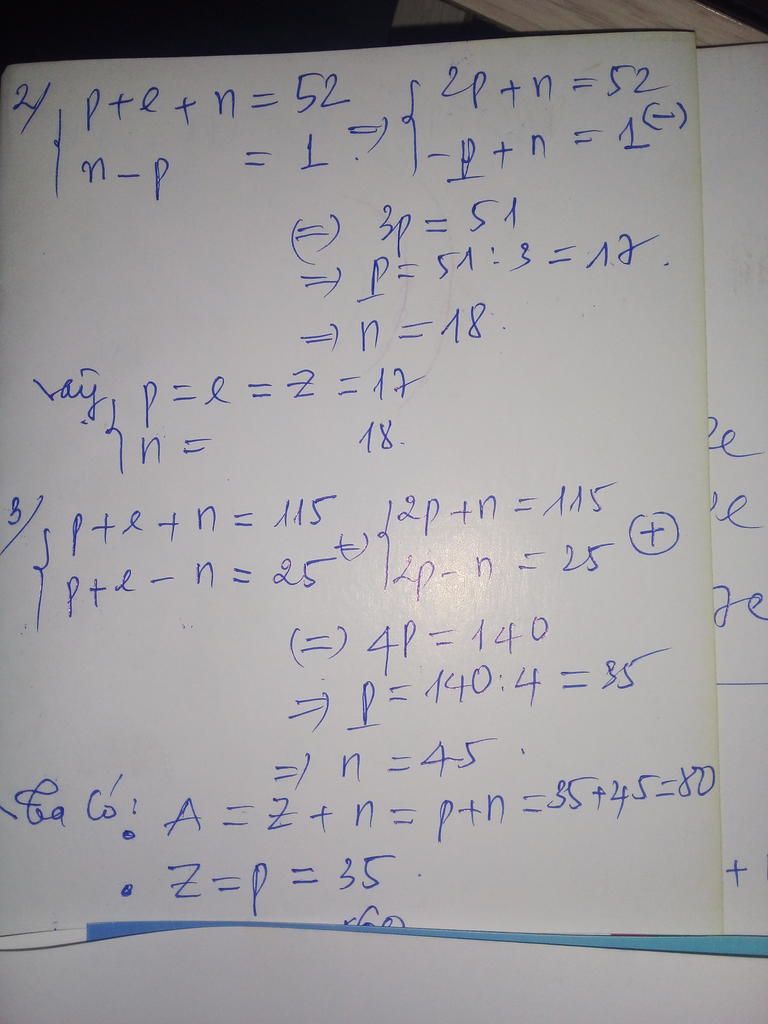 2/ { p + e + n = 52 => { 2p + n = 52
n - p = 1 -p + n = 1 (-)
(=) 3p = 51
=> p = 51 : 3 = 17.
=> n = 18.
Vậy { p = e = Z = 17
n = 18.
3/ { p + e + n = 115 (=) { 2p + n = 115
p + e - n = 25 2p - n = 25 (+)
(=) 4p = 140
=> p = 140 : 4 = 35
=> n = 45.
Ta có: • A = Z + n = p + n = 35 + 45 = 80
• Z = p = 35.